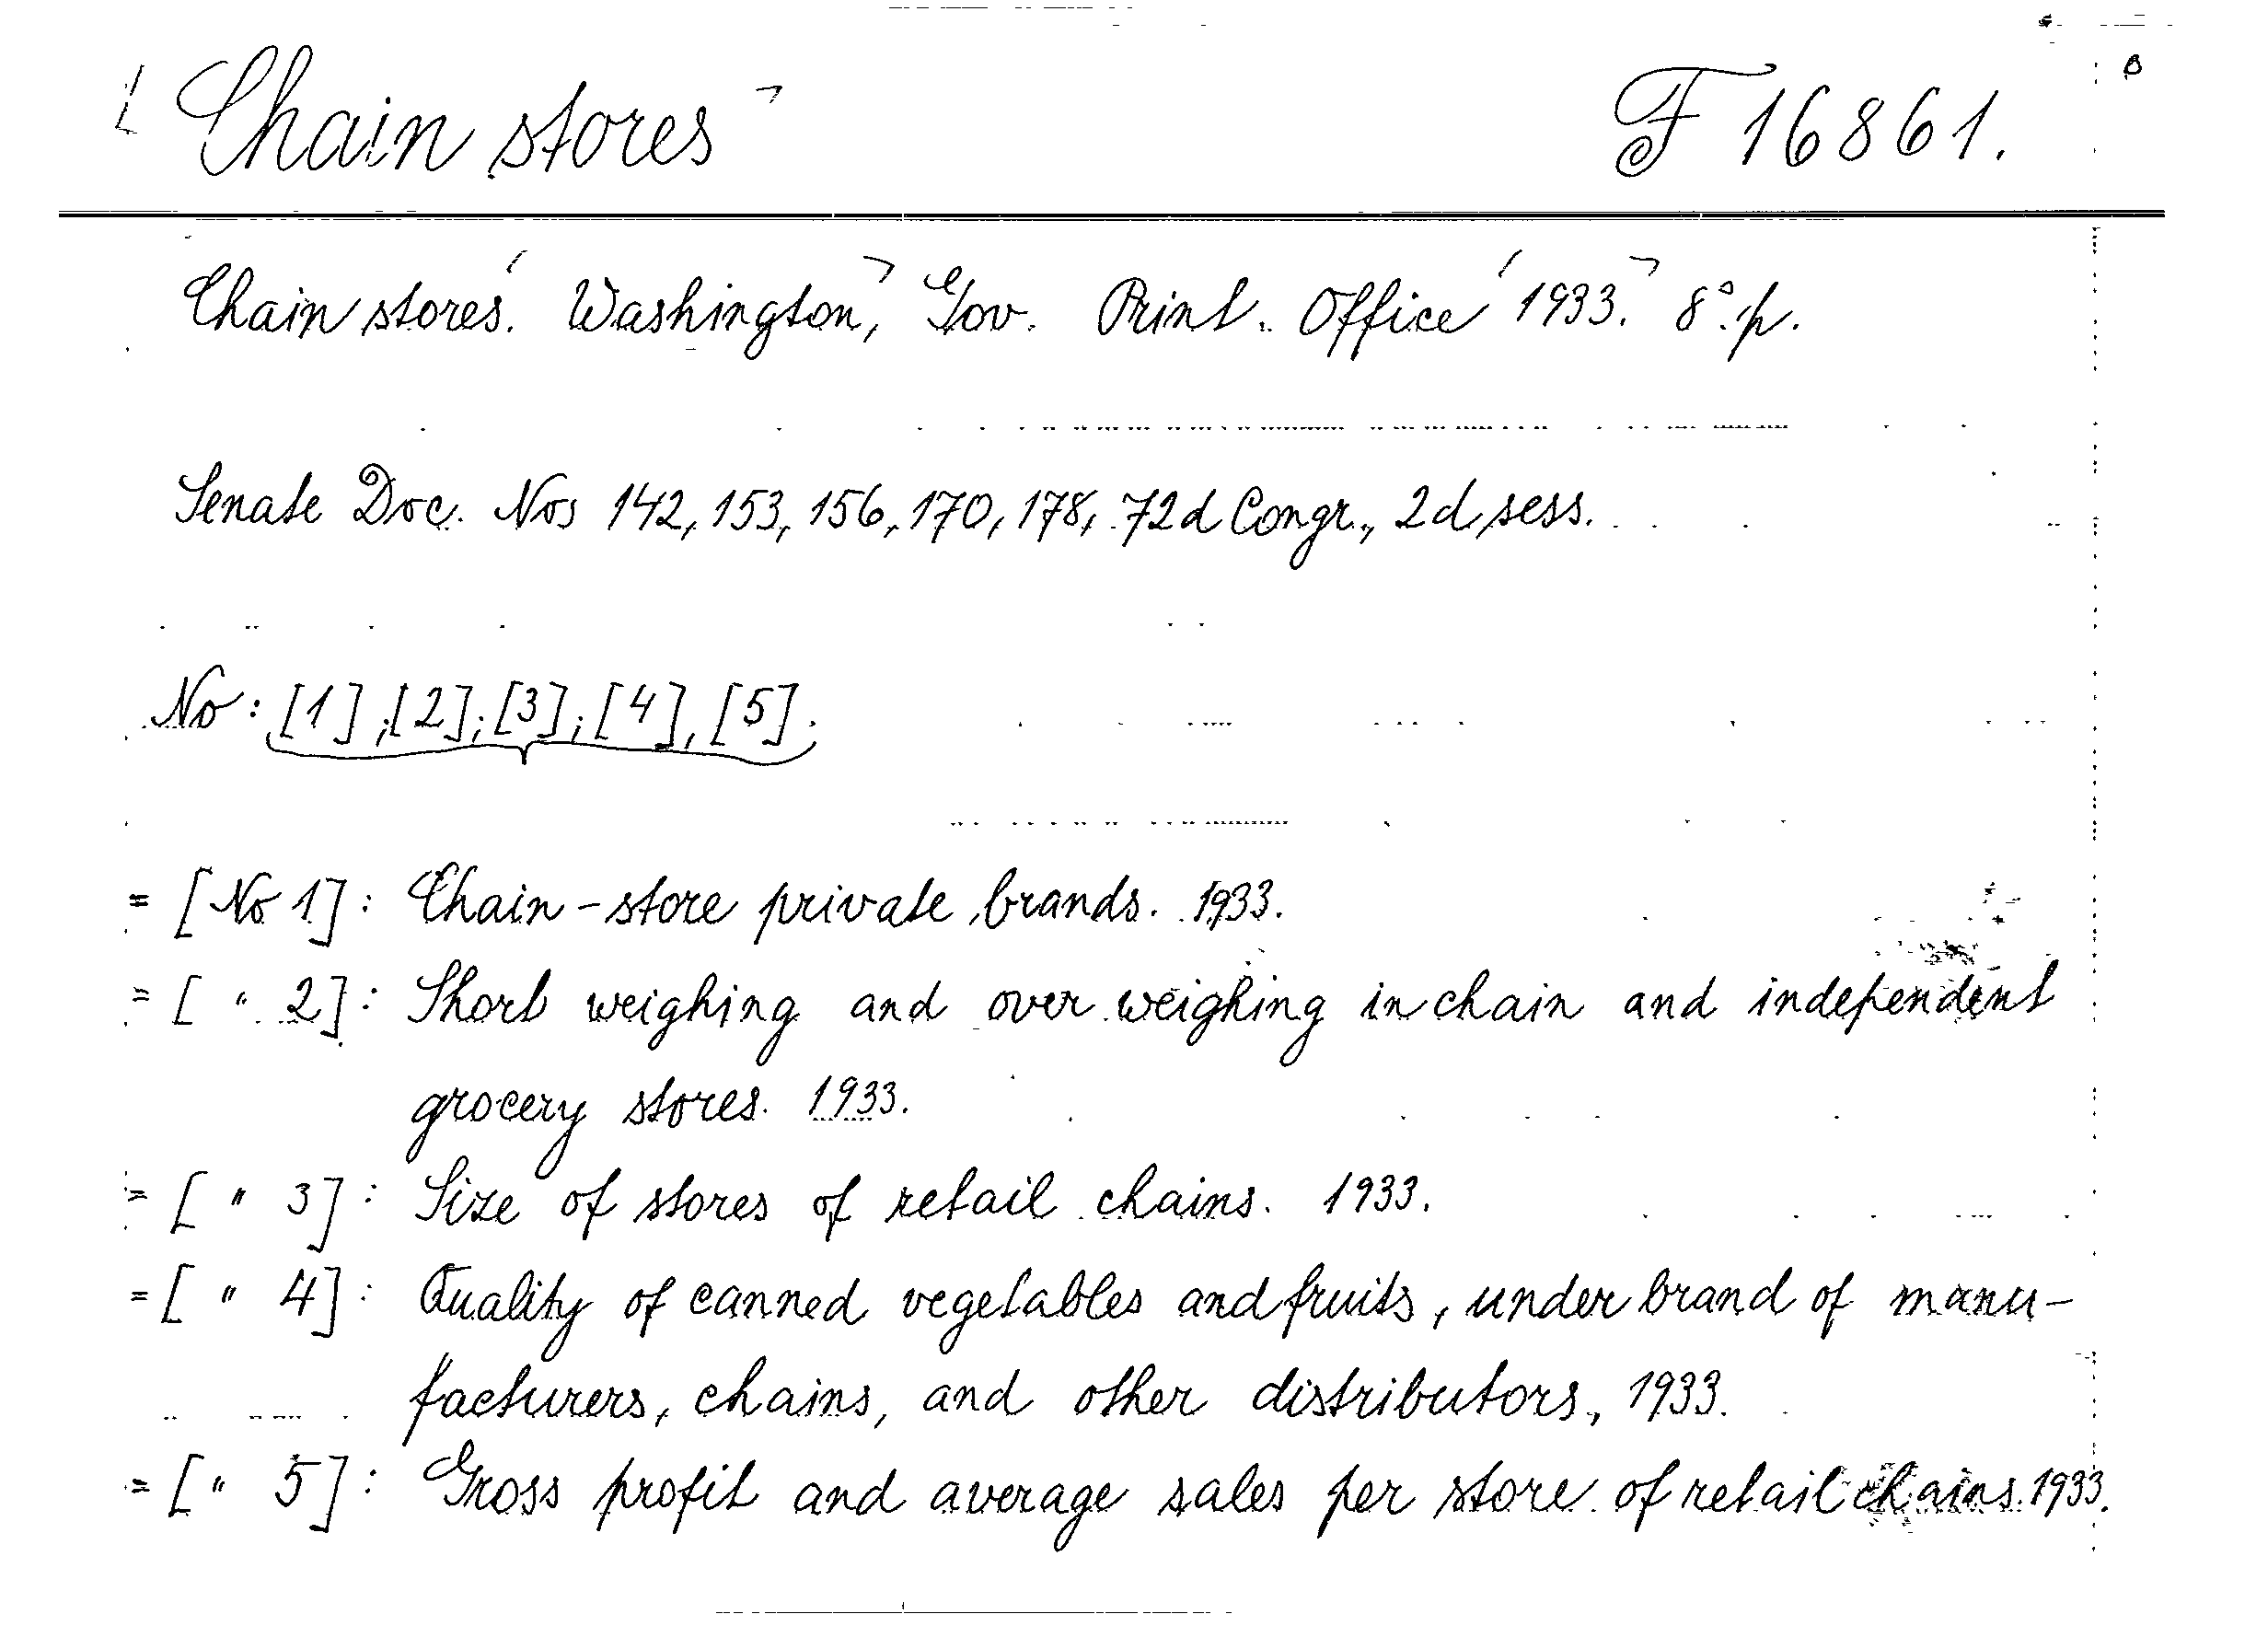 Chain stores F 16861.
Chain stores. Washington, Gov. Print. Office 1933. 8° p.
Senate Doc. Nos 142, 153, 156, 170, 178, 72d Congr., 2d sess.
No: [1]; [2]; [3]; [4], [5].
= [No 1]: Chain-store private brands. 1933.
= [ " 2]: Short weighing and over weighing in chain and independent
grocery stores. 1933.
= [ " 3]: Size of stores of retail chains. 1933.
= [ " 4]: Quality of canned vegetables and fruits, under brand of manu-
facturers, chains, and other distributors, 1933.
= [ " 5]: Gross profit and average sales per store of retail chains. 1933.